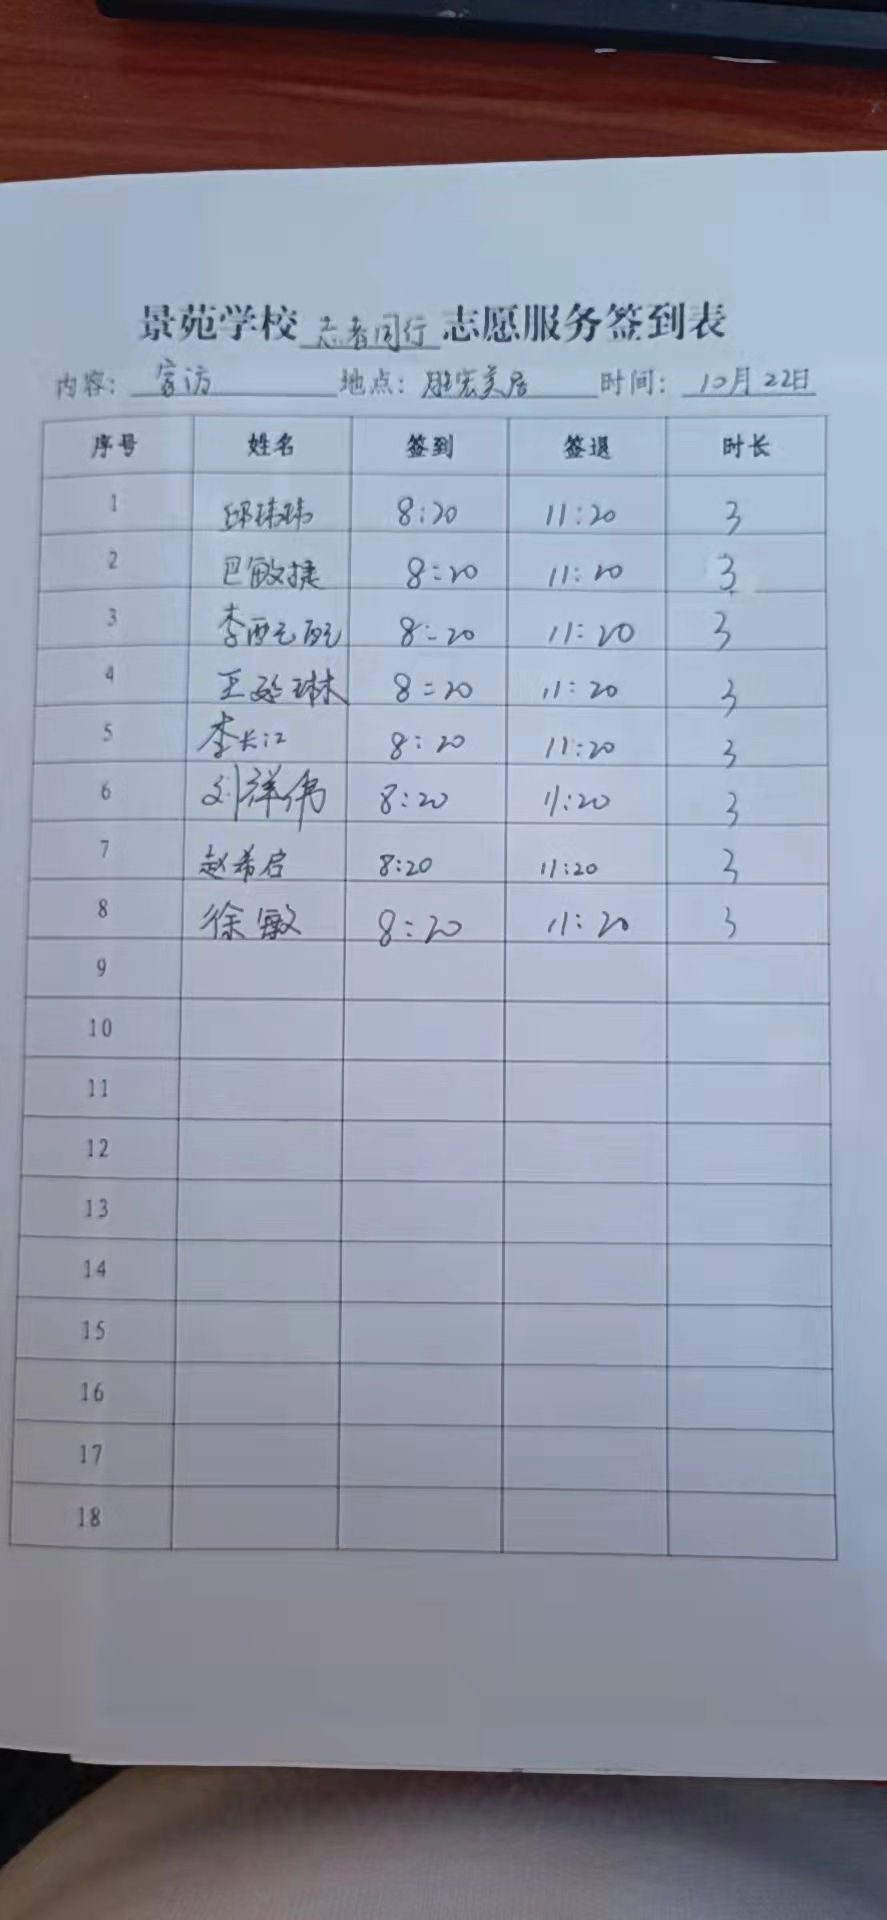 景苑学校 志者同行 志愿服务签到表
内容: 家访 地点: 胜宏美居 时间: 10月22日
序号 姓名 签到 签退 时长
1 邱玮玮 8:20 11:20 3
2 巴敏捷 8:20 11:20 3
3 李 8:20 11:20 3
4 王 琳 8:20 11:20 3
5 李长江 8:20 11:20 3
6 刘洋伟 8:20 11:20 3
7 赵希启 8:20 11:20 3
8 徐敏 8:20 11:20 3
9
10
11
12
13
14
15
16
17
18